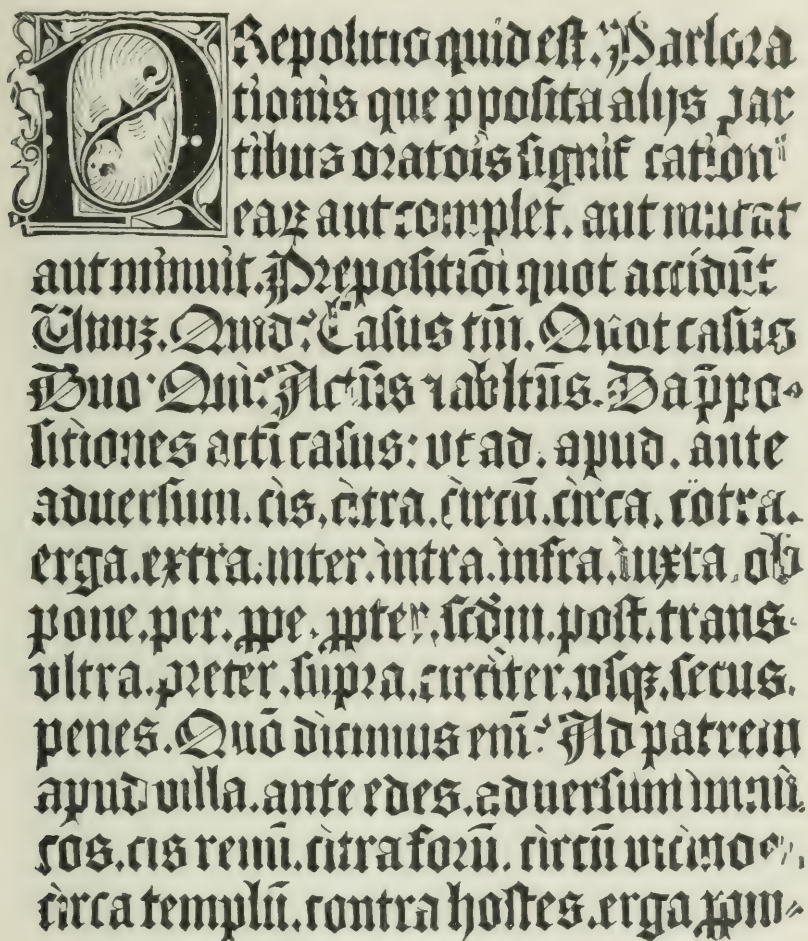 PRepositio quid est. Pars ora
tionis que ꝓposita alijs par
tibus oratōis significationē
eaꝝ aut complet. aut mutat
aut minuit. Prepositiōi quot accidūt
Unuꝫ. Quid? Casus tm̄. Quot casus
Duo Qui? Actūs ⁊ abltūs. Da p̄po-
sitiones actī casus: vt ad. apud. ante
aduersum. cis. citra. circū. circa. cōtra.
erga. extra. inter. intra. infra. iuxta. ob
pone. per. ꝓpe. ꝓpter. scdm̄. post. trans.
vltra. preter. supra. circiter. vsqꝫ. secus.
penes. Quō dicimus enī? Ad patrem
apud villā. ante edes. aduersum inimi
cos. cis renū. citra forū. circū vicinos.
circa templū. contra hostes. erga ꝓpin-